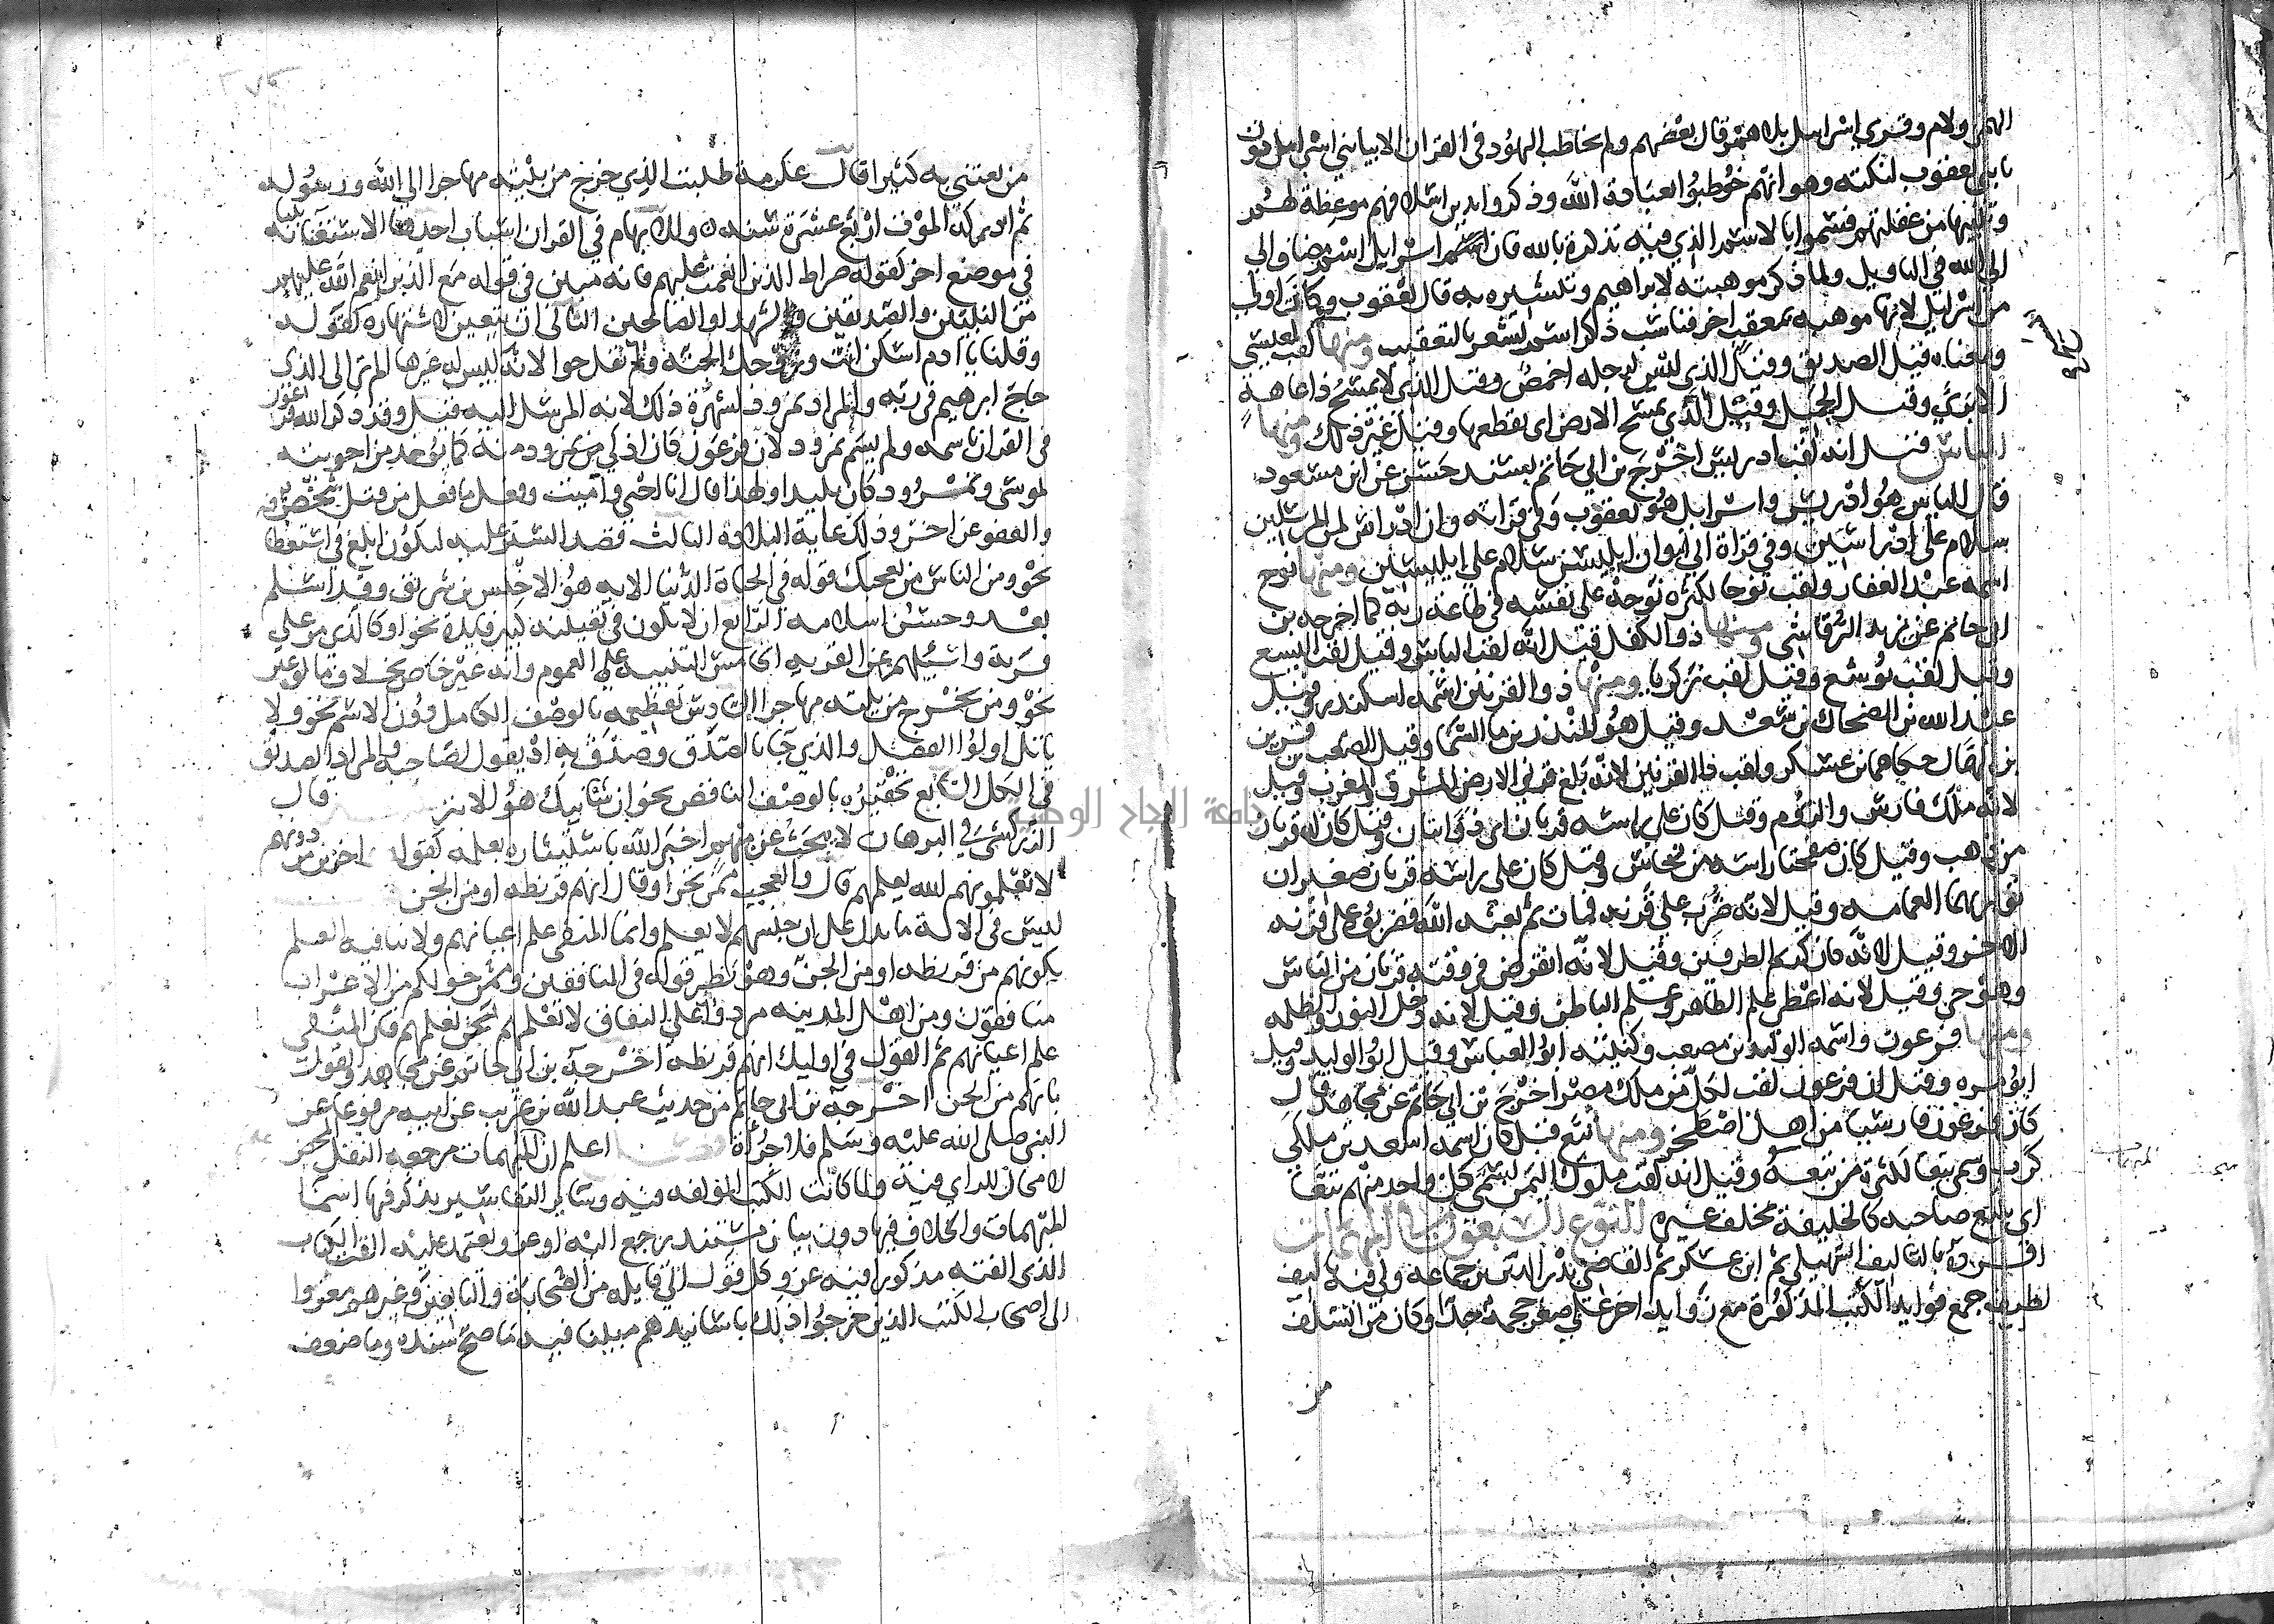 الهمز ولام وقرى اسراىل بلا همز قال بعضهم ولم يخاطب اليهود في القران الا بيابني اسرائيل دون
يا بني يعقوب لنكتة وهو انهم خوطبوا بعبادة الله وذكروا بدين اسلافهم موعظة لهم
وتنبيها من غفلتهم فسموا بالاسم الذي فيه تذكرة بالله فان اسراييل اسم مضاف الى
الى الله في التاويل ولما ذكر موهبته لابراهيم وتبشيره به قال يعقوب وكان اولى
من اسراييل لانها موهبة بمعقب اخر فناسب ذكر اسم يشعر بالتعقيب ومنها المسيح لقب لعيسى
ومعناه قيل الصديق وقيل الذي ليس لرجله اخمص وقيل الذي لا يمسح ذا عاهة
الا برئ وقيل الجميل وقيل الذي يمسح الارض اى يقطعها وقيل غير ذلك ومنها
الياس قيل انه لقب ادريس اخرج بن ابي حاتم بسند حسن عن ابن مسعود
قال الياس هو ادريس واسراييل هو يعقوب وفي قراته وان ادراس لمن المرسلين
سلام على ادراسين وفي قراة ابي وان ايليس سلام على ايليسين ومنها نوح
اسمه عبد الغفار ولقب نوحا لكثرة نوحه على نفسه في طاعة ربه كما اخرجه بن
ابي حاتم عن يزيد الرقاشي ومنها ذو الكفل قيل انه لقب الياس وقيل لقب اليسع
وقيل لقب يوشع وقيل لقب زكريا ومنها ذو القرنين اسمه اسكندر وقيل
عبد الله بن الضحاك بن سعد وقيل هو المنذر بن ما السما وقيل الصعب بن قرين
بن الهمال حكاهما بن عسكر ولقب ذا القرنين لانه بلغ قرني الارض المشرق والمغرب وقيل
لانه ملك فارس والروم وقيل كان على راسه قرنان اى ذوابتان وقيل كان له قرنان
من ذهب وقيل كان صفحتا راسه من نحاس وقيل كان على راسه قرنان صغيران
تواريهما العمامه وقيل لانه ضرب على قرنه فمات ثم بعثه الله فضربوه على قرنه
الاخر وقيل لانه كان كريم الطرفين وقيل لانه انقرض في وقته قرنان من الناس
وهو حي وقيل لانه اعطي علم الظاهر وعلم الباطن وقيل لانه دخل النور والظلمه
ومنها فرعون واسمه الوليد بن مصعب وكنيته ابو العباس وقيل ابو الوليد وقيل
ابو مره وقيل ان فرعون لقب لكل من ملك مصر اخرج بن ابي حاتم عن مجاهد قال
كان فرعون فارسيا من اهل اصطخر ومنها تبع قيل كان اسمه اسعد بن ملكي
كرب وسمي تبعا لكثرة من تبعه وقيل انه لقب ملوك اليمن ليسمى كل واحد منهم تبعا
اى يتبع صاحبه كالخليفة يخلف غيره النوع السبعون في المبهمات
افرده بالتاليف السهيلي ثم ابن عسكر ثم القاضي بدر الدين بن جماعه ولي فيه تاليف
لطيف جمع فوايد الكتب المذكورة مع زوايد اخر على صغر حجمه جدا وكان من السلف
من
المبهمات
من يعتني به كثيرا قال عكرمة طلبت الذي خرج من بيته مهاجرا الى الله ورسوله
ثم ادركه الموت اربع عشرة سنه وللابهام في القران اسباب احدها الاستغنا ببيانه
في موضع اخر كقوله صراط الذين انعمت عليهم فانه مبين في قوله مع الذين انعم الله عليهم
من النبيين والصديقين والشهدا والصالحين الثاني ان يتعين لاشتهاره كقوله
وقلنا يا ادم اسكن انت وزوجك الجنة ولم يقل حوا لانه ليس له غيرها الم تر الى الذي
حاج ابرهيم في ربه والمراد نمرود لشهرة ذلك لانه المرسل اليه قيل وقد ذكر الله فرعون
في القران باسمه ولم يسم نمرود لان فرعون كان اذكى من نمرود منه كما يؤخذ من اجوبته
لموسى ونمرود كان بليدا ولهذا قال انا احيي واميت وفعل ما فعل من قتل شخص
والعفو عن اخر وذلك غاية البلادة الثالث قصد الستر عليه ليكون ابلغ في استعطافه
نحو ومن الناس من يعجبك قوله في الحياة الدنيا الايه هو الاخنس بن شريق وقد اسلم
بعد وحسن اسلامه الرابع ان لا يكون في تعيينه كبير فايدة نحو او كالذي مر على
قرية واسئلهم عن القريه الخامس التنبيه على العموم وانه غير خاص بخلاف ما لو عين
نحو ومن يخرج من بيته مهاجرا السادس تعظيمه بالوصف الكامل دون الاسم نحو ولا
ياتل اولوا الفضل والذي جا بالصدق وصدق به اذ يقول لصاحبه والمراد الصديق
في الكل السابع تحقيره بالوصف الناقص نحو ان شانيك هو الابتر قال
الزركشي في البرهان لا يبحث عن مبهم اخبر الله باستيثاره بعلمه كقوله واخرين من دونهم
لا تعلمونهم الله يعلمهم قال والعجب ممن تجرا وقال انهم قريظه او من الجن
ليس في الاية ما يدل على ان جنسهم لا يعلم وانما المنفي علم اعيانهم ولا ينافيه العلم
بكونهم من قريظه او من الجن وهو نظير قوله في المنافقين وممن حولكم من الاعراب
منافقون ومن اهل المدينه مردوا على النفاق لا تعلمهم نحن نعلمهم فان المنفي
علم اعيانهم ثم القول في اوليك انهم قريظه اخرجه بن ابي حاتم عن مجاهد والقول
بانهم من الجن اخرجه بن ابي حاتم من حديث عبد الله بن عريب عن ابيه مرفوعا عن
النبي صلى الله عليه وسلم فلا جرأة اعلم ان المبهمات مرجعه النقل المحض
لا مجال للراي فيه ولما كانت الكتب المولفه فيه وساير التفاسير يذكر فيها اسما
المبهمات والخلاف فيها دون بيان مستند يرجع اليه او عزو يعتمد عليه الفت الكتاب
الذي الفته مذكورا فيه عزو كل قول الى قايله من الصحابة والتابعين وغيرهم معزوا
الى اصحاب الكتب الذين خرجوا ذلك باسانيدهم مبينا فيه ما صح سنده وما ضعف
جامعة النجاح الوطنية